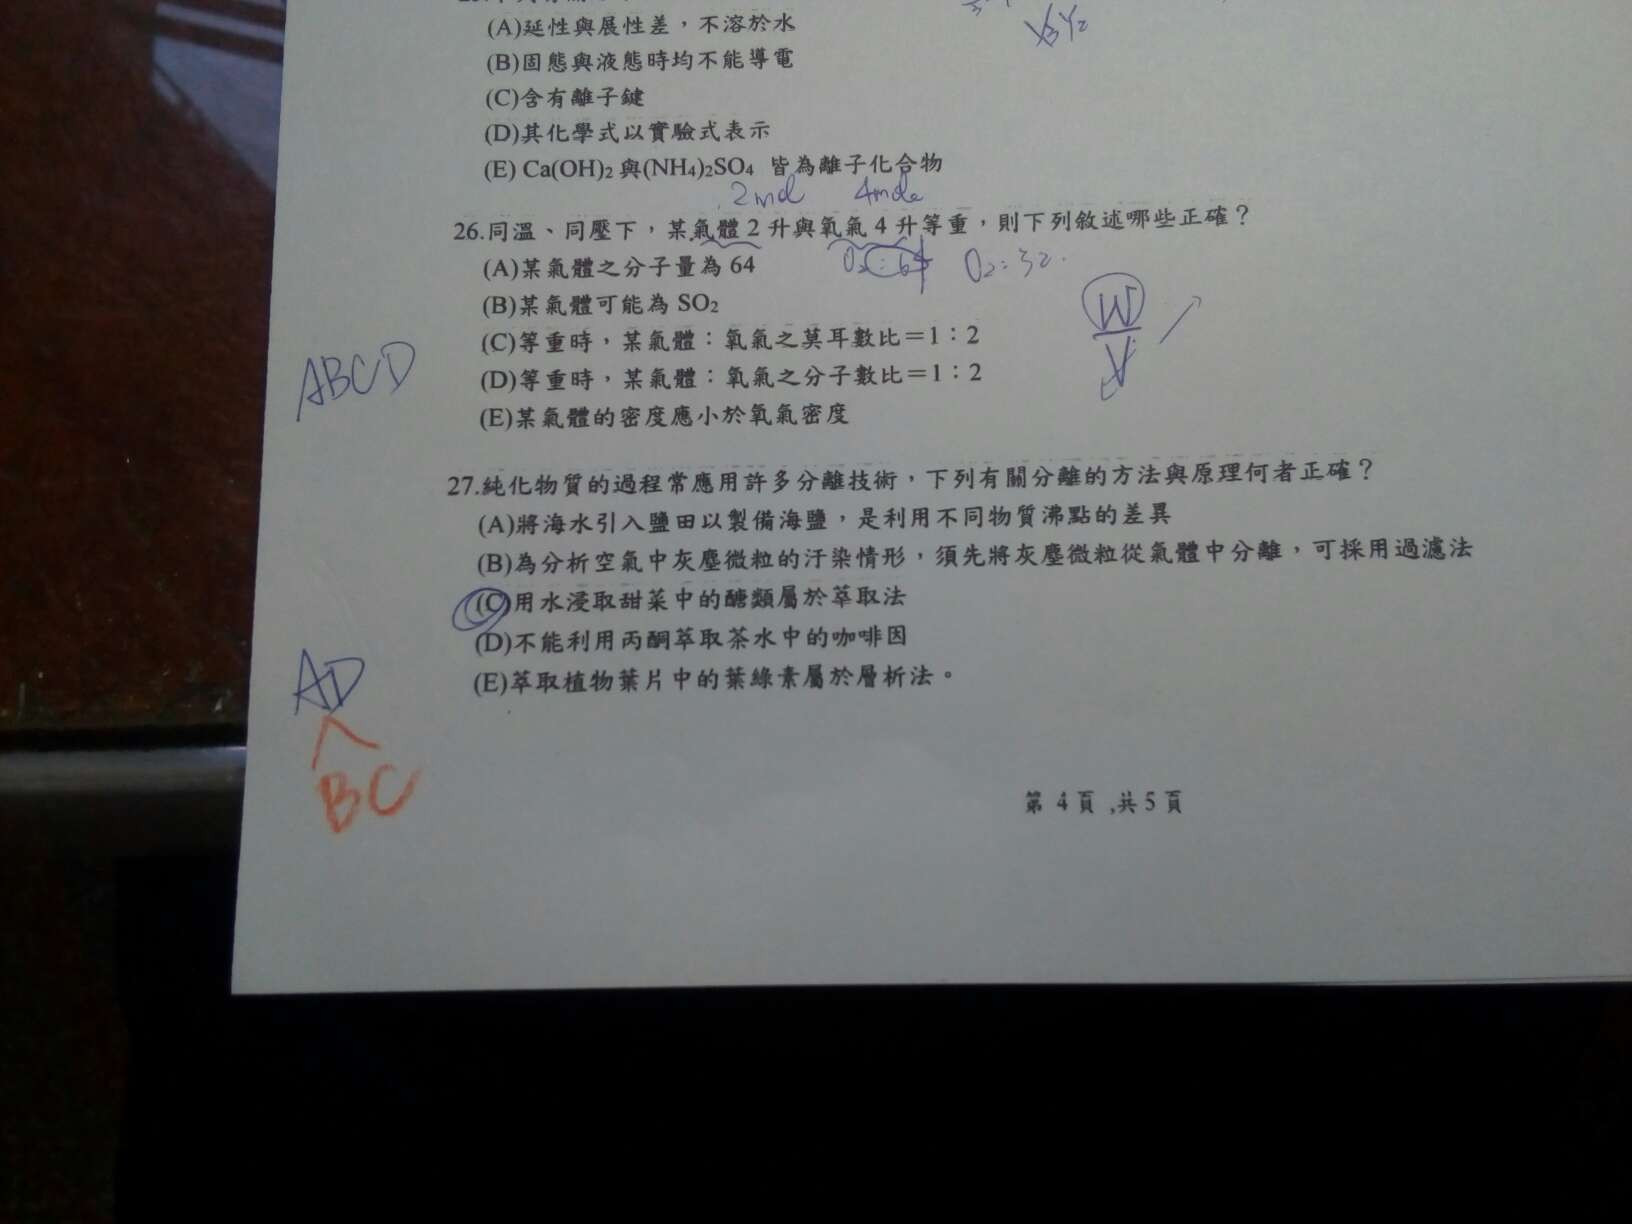 (A)延性與展性差，不溶於水
X₃Y₂
(B)固態與液態時均不能導電
(C)含有離子鍵
(D)其化學式以實驗式表示
(E) Ca(OH)₂ 與(NH₄)₂SO₄ 皆為離子化合物
2mol 4mole
26.同溫、同壓下，某氣體 2 升與氧氣 4 升等重，則下列敘述哪些正確？
(A)某氣體之分子量為 64
O₂:64 O₂:32.
(B)某氣體可能為 SO₂
W
V
(C)等重時，某氣體：氧氣之莫耳數比＝1：2
ABCD
(D)等重時，某氣體：氧氣之分子數比＝1：2
(E)某氣體的密度應小於氧氣密度
27.純化物質的過程常應用許多分離技術，下列有關分離的方法與原理何者正確？
(A)將海水引入鹽田以製備海鹽，是利用不同物質沸點的差異
(B)為分析空氣中灰塵微粒的汙染情形，須先將灰塵微粒從氣體中分離，可採用過濾法
(C)用水浸取甜菜中的醣類屬於萃取法
(D)不能利用丙酮萃取茶水中的咖啡因
AD
(E)萃取植物葉片中的葉綠素屬於層析法。
BC
第 4 頁 ,共 5 頁